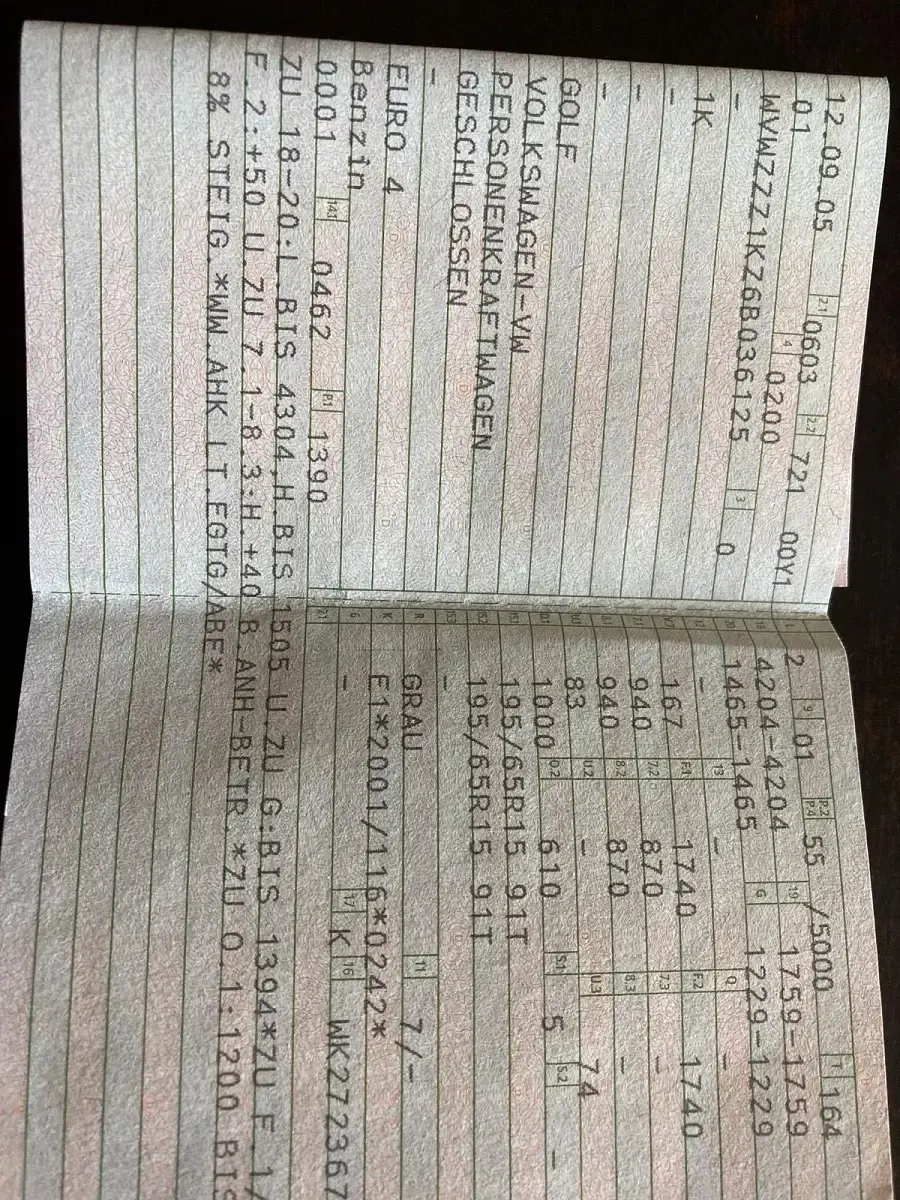 12.09.05 2.1 0603 2.2 721 00Y1
01 4 0200
WVWZZZ1KZ6B036125 3 0
-
1K
-
-
-
GOLF
VOLKSWAGEN-VW
PERSONENKRAFTWAGEN
GESCHLOSSEN
-
EURO 4
Benzin
0001 14.1 0462 P.1 1390
L 2 9 01 P.2 P.4 55 /5000 T 164
18 4204-4204 19 1759-1759
20 1465-1465 G 1229-1229
12 - 13 - Q -
V.7 167 F.1 1740 F.2 1740
7.1 940 7.2 870 7.3 -
8.1 940 8.2 870 8.3 -
U.1 83 U.2 - U.3 74
O.1 1000 O.2 610 S.1 5 S.2 -
15.1 195/65R15 91T
15.2 195/65R15 91T
15.3 -
R GRAU 11 7/-
K E1*2001/116*0242*
6 - 17 K 16 WK272367
21
ZU 18-20:L.BIS 4304,H.BIS 1505 U.ZU G:BIS 1394*ZU F.1/
F.2:+50 U.ZU 7.1-8.3:H.+40 B.ANH-BETR.*ZU O.1:1200 BIS
8% STEIG.*WW.AHK LT.EGTG/ABE*